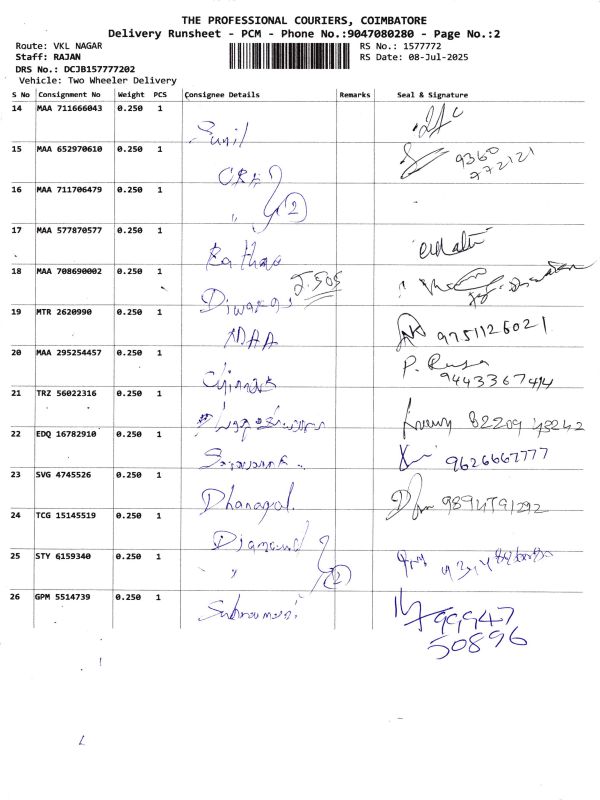 THE PROFESSIONAL COURIERS, COIMBATORE
Delivery Runsheet - PCM - Phone No.:9047080280 - Page No.:2
Route: VKL NAGAR RS No.: 1577772
Staff: RAJAN RS Date: 08-Jul-2025
DRS No.: DCJB157777202
Vehicle: Two Wheeler Delivery
S No Consignment No Weight PCS Consignee Details Remarks Seal & Signature
14 MAA 711666043 0.250 1 Sunil
15 MAA 652970610 0.250 1 9360
972121
16 MAA 711706479 0.250 1 " 2
17 MAA 577870577 0.250 1
18 MAA 708690002 0.250 1
19 MTR 2620990 0.250 1 9751126021
20 MAA 295254457 0.250 1
9443367414
21 TRZ 56022316 0.250 1 82209 43242
22 EDQ 16782910 0.250 1 9626667777
23 SVG 4745526 0.250 1 Dhanapal
24 TCG 15145519 0.250 1 Diamond
25 STY 6159340 0.250 1 " 2
26 GPM 5514739 0.250 1 99947
50896